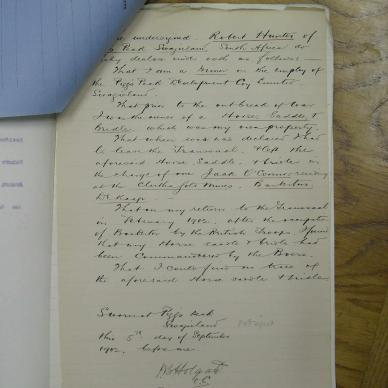 undersigned Robert Hunter of
Peak Swazieland, South Africa do
declare under oath as follows:—
That I am a Miner in the employ of
the Piggs Peak Development Coy Limited
Swazieland.
That prior to the outbreak of War
I was the owner of a Horse, Saddle, &
Bridle which was my own property.
That when war was declared I had
to leave the Transvaal & left the
aforesaid Horse, Saddle, & bridle in
the charge of one Jack O'Connor residing
at the Mines. Barberton
De Kaap.
That on my return to the Transvaal
in February 1902, after the occupation
of Barberton by the British Troops, I found
that my Horse saddle & bridle had
been Commandeered by the Boers.
That I could find no trace of
the aforesaid Horse saddle & bridle.
Sworn at Piggs Peak
Swazieland
this 5th day of September
1902, before me.